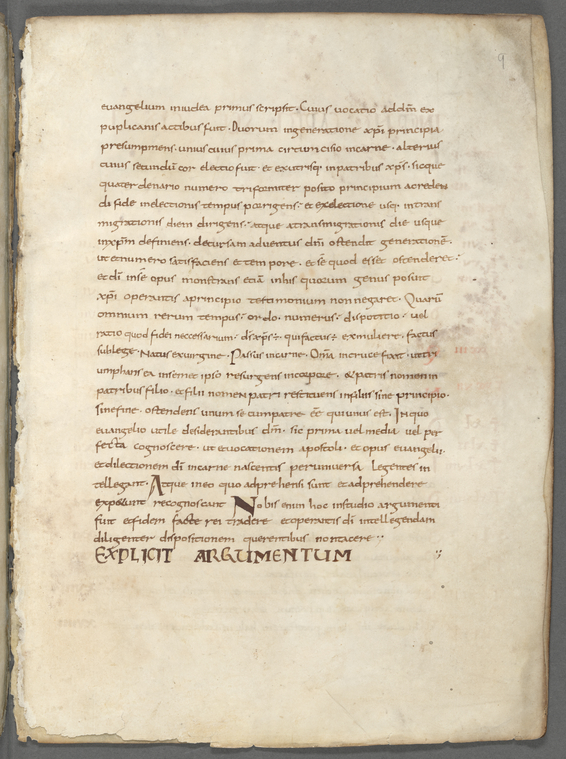 9
evangelium iniudea primus scripsit · Cuius uocatio addm̄ ex
puplicanis actibus fuit · Duorum ingeneratione xp̄i principia
presumpmens · unius cuius prima circumcisio incarne · alterius
cuius secundū cor electio fuit · et exutrisq; inpatribus xp̄s · sicque
quaterdenario numero triformiter posito principium acreden
di fide inelectionis tempus porrigens · et exelectione usq; intrans
migrationis diem dirigens · atque atransmigrationis die usque
inxpm̄ definiens · decursam aduentus dn̄i ostendit generationē ·
ut etnumero satisfaciens et tempore · et se quod esset ostenderet
et dī inse opus monstrans etiā inhis quorum genus posuit
xp̄i operantis aprincipio testimonium non negaret · Quarū
omnium rerum tempus · ordo · numerus · dispositio · uel
ratio quod fidei neccessarium · ds̄ xp̄s ÷ · qui factus ÷ exmuliere · factus
sublege · Natus exuirgine · Passus incarne · Om̄a incruce fixit · uttri
umphans ea insemet ipso resurgens incorpore · & patris nomen in
patribus filio · et filii nomen patri restituens infiliis sine principio ·
sinefine · ostendens unum se cumpatre eē quiunus est · Inquo
euangelio utile desiderantibus dm̄ · sic prima uel media uel per
fecta cognoscere · ut euocationem apostoli · et opus euangelii ·
et dilectionem di incarne nascentis peruniuersa legentes in
tellegant · Atque ineo quo adprehensi sunt et adprehendere
expetunt recognoscant Nobis enim hoc instudio argumenti
fuit et fidem factae rei tradere et operantis di intellegendam
diligenter dispositionem querentibus non tacere
EXPLICIT ARGUMENTUM